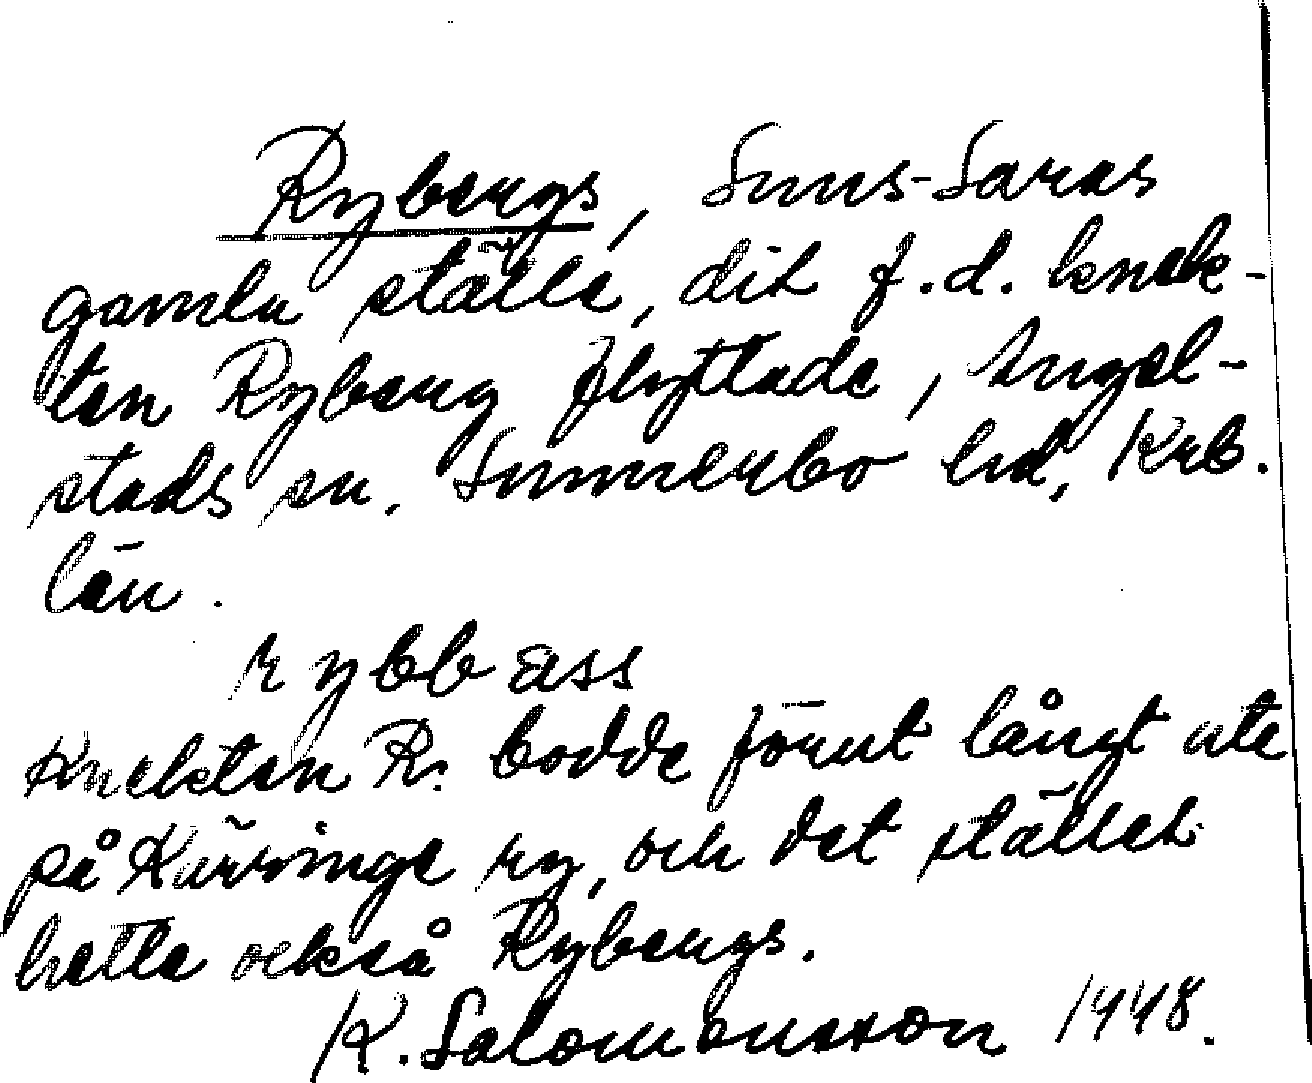 Rybergs, Suns-Saras
gamla ställe, dit f.d. knek-
ten Ryberg flyttade, Angel-
stads sn. Sunnerbo hd, Krb.
län.
rybbäss
Knekten R. bodde förut långt ute
på Kärringe ry, och det stället
hette också Rybergs.
K. Salomonsson 1948.